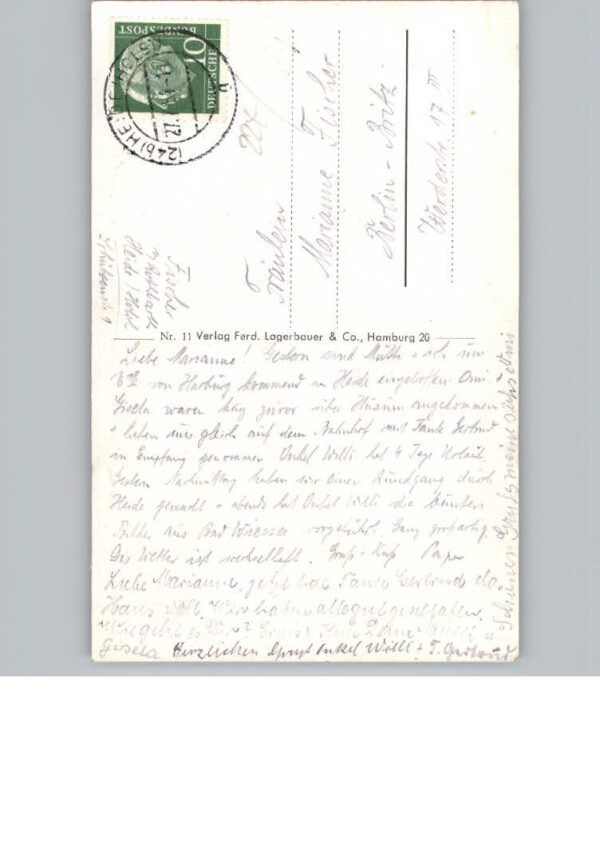 DEUTSCHE
BUNDESPOST
10
(24b) HEIDE (HOLST)
27.
Fräulein
Marianne Fischer
Berlin-Britz
Werderstr. 17 III
Fischer
Heide / Holst
Nr. 11 Verlag Ferd. Lagerbauer & Co., Hamburg 20
Liebe Marianne! Gestern sind Mutti + ich um
von Harburg kommend in Heide eingetroffen. Omi
Gisela waren kurz zuvor über Husum angekommen
+ haben uns gleich auf dem Bahnhof mit Tante Gertrud
in Empfang genommen. Onkel Willi hat 4 Tage Urlaub.
Gestern Nachmittag haben wir einen Rundgang durch
Heide gemacht + abends hat Onkel Willi die bunten
Bilder aus Bad Wiessee vorgeführt. Ganz großartig.
Das Wetter ist wechselhaft. Gruß + Kuß Papa
Liebe Marianne, jetzt hat Tante Gertrud das
Haus voll. Wir haben alle gut geschlafen.
Wie geht es Dir? Deine Mutti u.
Gisela Herzlichen Gruß Onkel Willi + T. Gertrud
Schönen Gruß Omi